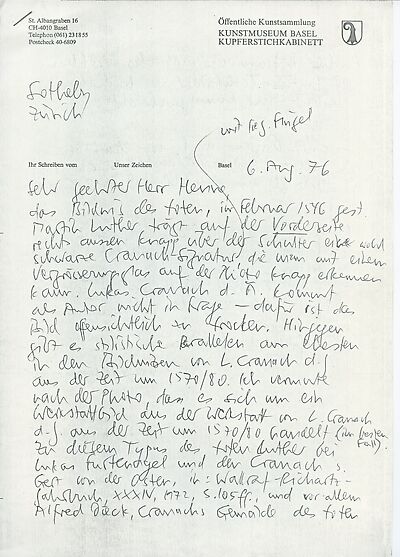 St. Albangraben 16
CH-4010 Basel
Telephon (061) 23 18 55
Postcheck 40-6809
Öffentliche Kunstsammlung
KUNSTMUSEUM BASEL
KUPFERSTICHKABINETT
Sotheby
Zürich
mit lieg. Flügel
Ihr Schreiben vom Unser Zeichen Basel 6. Aug. 76
Sehr geehrter Herr Henne
das Bildnis des toten, im Februar 1546 gest.
Martin Luther trägt auf der Vorderseite
rechts aussen knapp über der Schulter eine wohl
schwarze Cranach-Signatur, die man mit einem
Vergrösserungsglas auf der Photo knapp erkennen
kann. Lukas Cranach d. Ä. kommt
als Autor nicht in Frage – dafür ist das
Bild offensichtlich zu trocken. Hingegen
gibt es stilistische Parallelen am ehesten
in den Bildnissen von L. Cranach d. J.
aus der Zeit um 1570/80. Ich vermute
nach der Photo, dass es sich um ein
Werkstattbild aus der Werkstatt von L. Cranach
d. J. aus der Zeit um 1570/80 handelt (im besten
Fall).
Zu diesem Typus des toten Luther bei
Lukas Furtenagel und den Cranach s.
Gert von der Osten, in: Wallraf-Richartz-
Jahrbuch, XXXIV, 1972, S. 105 ff., und vor allem
Alfred Dieck, Cranachs Gemälde des toten